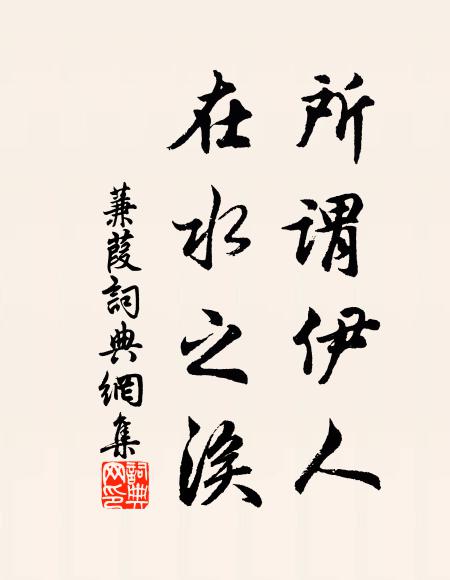 所謂伊人
在水之涘
蒹葭詞典網集
詞典網印